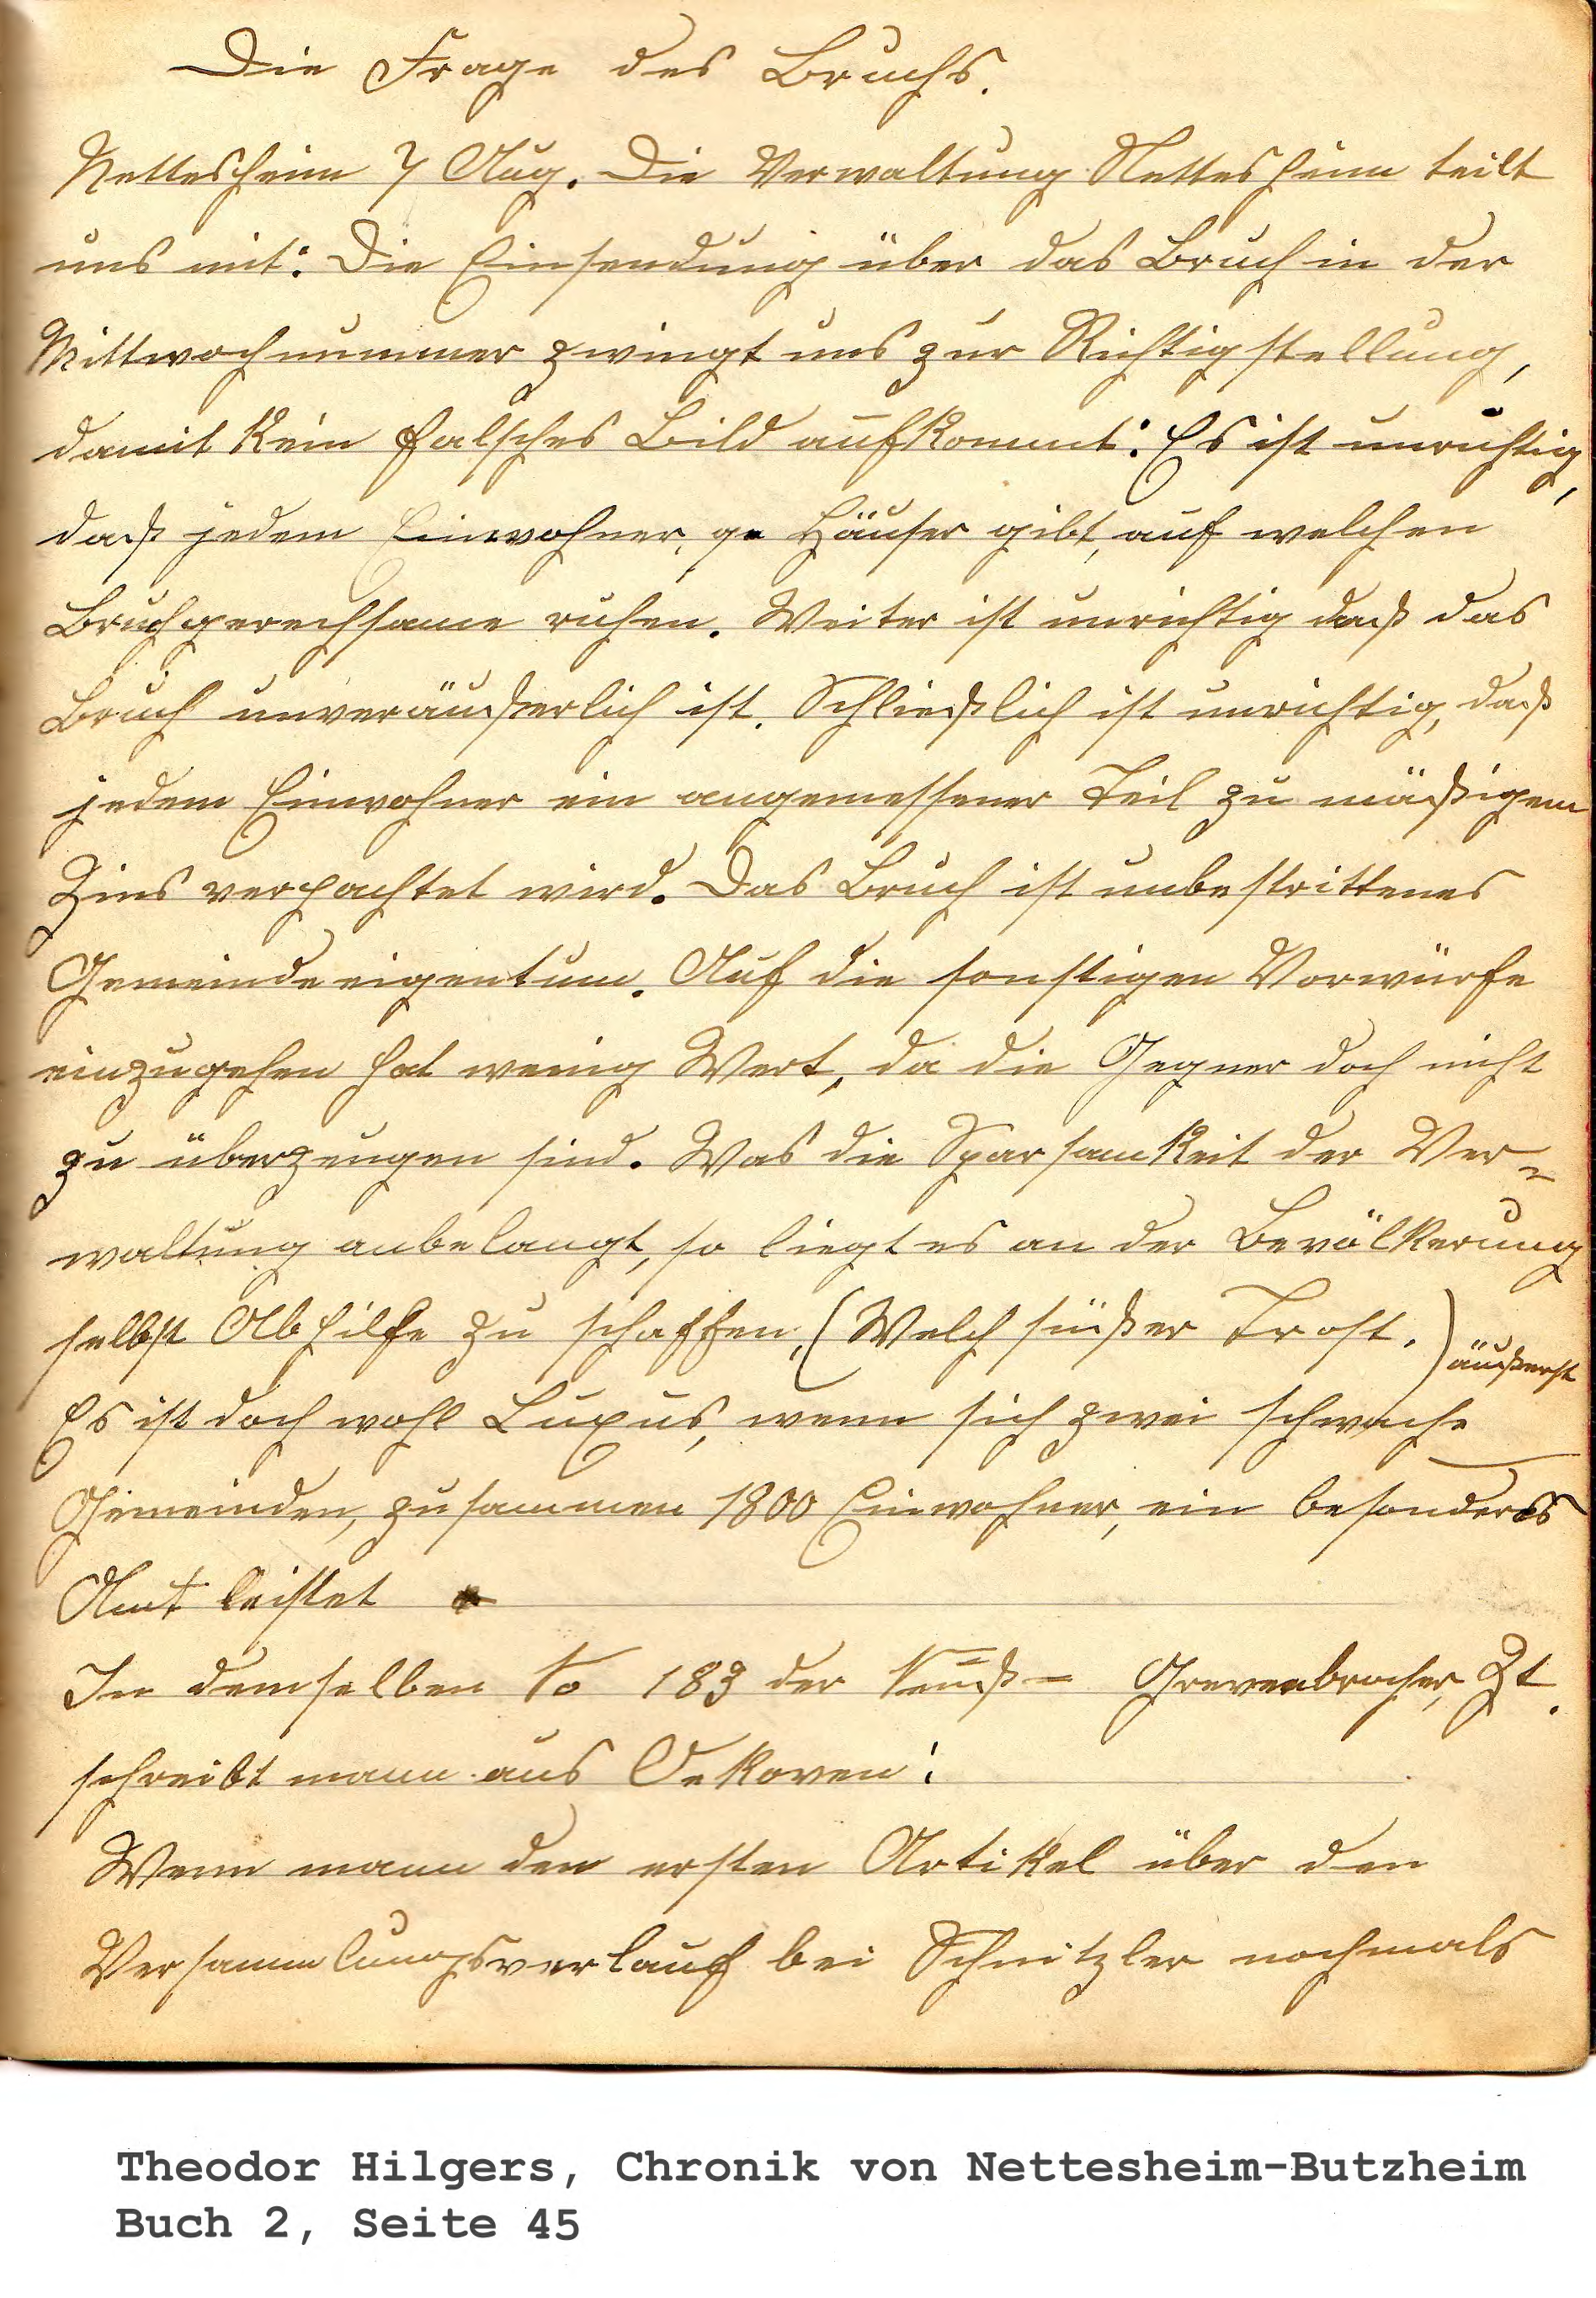 Die Frage des Bruchs.
Nettesheim 7 Aug. Die Verwaltung Nettesheim teilt
uns mit: Die Einsendung über das Bruch in der
Mittwochnummer zwingt uns zur Richtigstellung,
damit kein falsches Bild aufkommt: Es ist unrichtig,
daß jedem Einwohner, Häuser gibt, auf welchen
Bruchgerechsame ruhen. Weiter ist unrichtig daß das
Bruch unveräußerlich ist. Schließlich ist unrichtig, daß
jedem Einwohner ein angemessener Teil zu mäßigem
Zins verpachtet wird. Das Bruch ist unbestrittenes
Gemeindeeigentum. Auf die sonstigen Vorwürfe
einzugehen hat wenig Wert, da die Gegner doch nicht
zu überzeugen sind. Was die Sparsamkeit der Ver-
waltung anbelangt, so liegt es an der Bevölkerung
selbst Abhilfe zu schaffen, (Welch süßer Trost.)
äußerst
Es ist doch wohl Luxus, wenn sich zwei schwache
Gemeinden, zusammen 1800 Einwohner, ein besonders
Amt leistet
In demselben No 183 der Neuß- Grevenbrocher, Zt.
schreibt mann aus Oekoven:
Wenn mann den ersten Artikel über den
Versammlungsverlauf bei Schnitzler nochmals
Theodor Hilgers, Chronik von Nettesheim-Butzheim
Buch 2, Seite 45